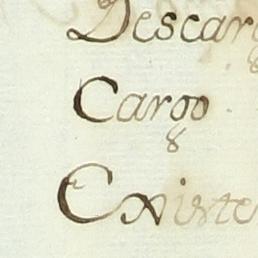 Descarg
Cargo
Existe